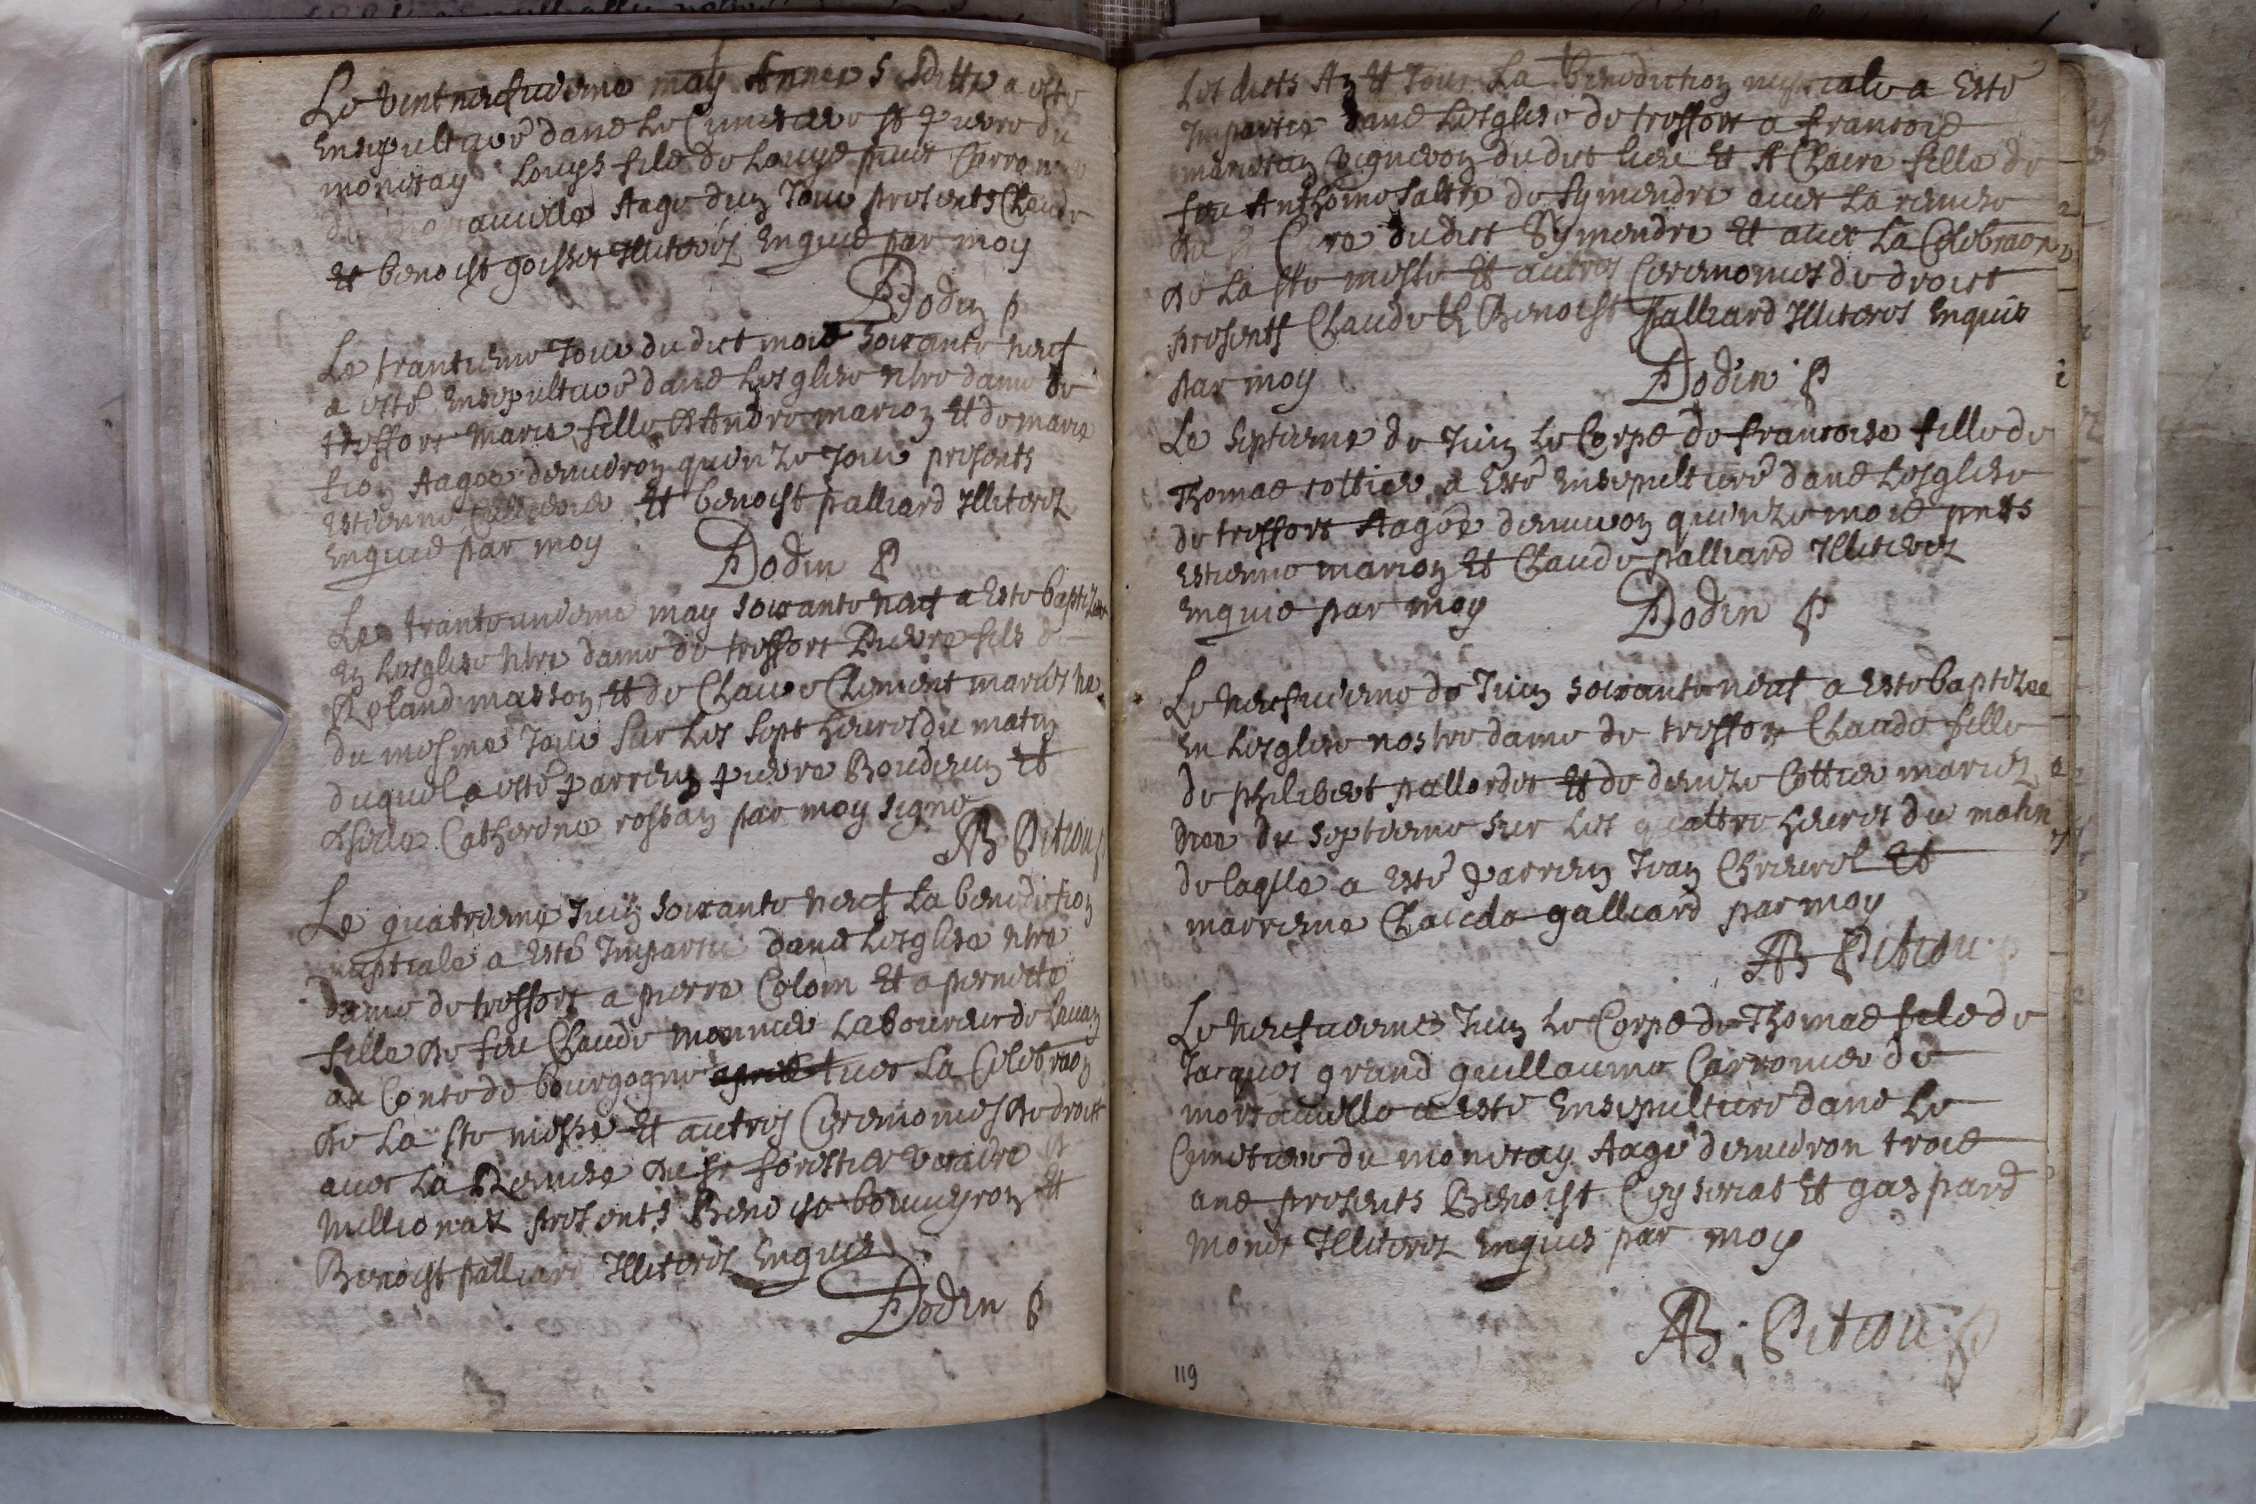 Le vint neufvieme may Annee Susditte a esté
Ensepulturé dans le Cimetiere St Pierre du
monetay Louys fils de Louys
Aagé dun Jour presents Claude
Et benoist goisset Illiterez Enquis par moy
Dodin p
Le trantieme Jour du dict mois soixante neuf
a esté Ensepulturé dans Lesglise nbre dame de
treffort marie fille d'Andre marion Et de marie
Aagee denviron quinze Jour presents
Estienne Et benoist palliard Illiterez
Enquis par moy
Dodin p
Le trante unieme may soixante neuf a Esté baptizé
En Lesglise nbre dame de treffort Pierre fils d
Roland masson Et de Claire Clement mariés né
du mesme Jour sur les sept heures du matin
duquel a esté parrein pierre Bouderin Et
Catherine rossan par moy signé
AB Pitiou p
Le quatrieme Juin soixante neuf La benediction
nuptiale a Esté Impartie dans Lesglise nbre
dame de treffort a pierre Colom Et a pernete
fille de feu Claude monnier Laboureur de
au Conte de bourgogne avec La Celebraon
de La Ste messe Et autres Ceremonies de droict
avec La Remise du Sr forestier vicaire
millionax presents Benoist bouveyron Et
Benoist palliard Illiterez Enquis
Dodin p
Les dicts An Et Jour La Benediction nuptiale a Esté
Impartie dans Lesglise de treffort a francois
Vigneron du dict lieu Et A Claire fille de
feu Anthoine de Symendre avec La remise
du Sr Cure dudict Symendre Et avec La Celebraon
de La ste messe Et autres Ceremonies de droict
presents Claude Et Benoist palliard Illiteres Enquis
par moy
Dodin p
Le septieme de Juin Le Corps de francoise fille de
Thomas cottier a Esté Ensepulturé dans Lesglise
de treffort Aagée denviron quinze mois pnts
Estienne marion Et Claude palliard Illiterez
Enquis par moy
Dodin p
Le neufvieme de Juin soixante neuf a Esté baptizee
En Lesglise nostre dame de treffort Claude fille
de philibert pallordet Et de denize Cottier mariez
nee du septieme sur les quattre heures du matin
de laqlle a esté parrein Jean Chrevrel Et
marreine Clauda galliard par moy
AB Pitiou
Le neufvieme Juin Le Corps de Thomas fils de
Jacques grand guillaume Carronier de
mortaville a esté Ensepulturé dans Le
Cimetiere du monetay Aagé denviron trois
ans presents Benoist Cuyseriat Et gaspard
monet Illiterez Enquis par moy
AB Pitiou p
119